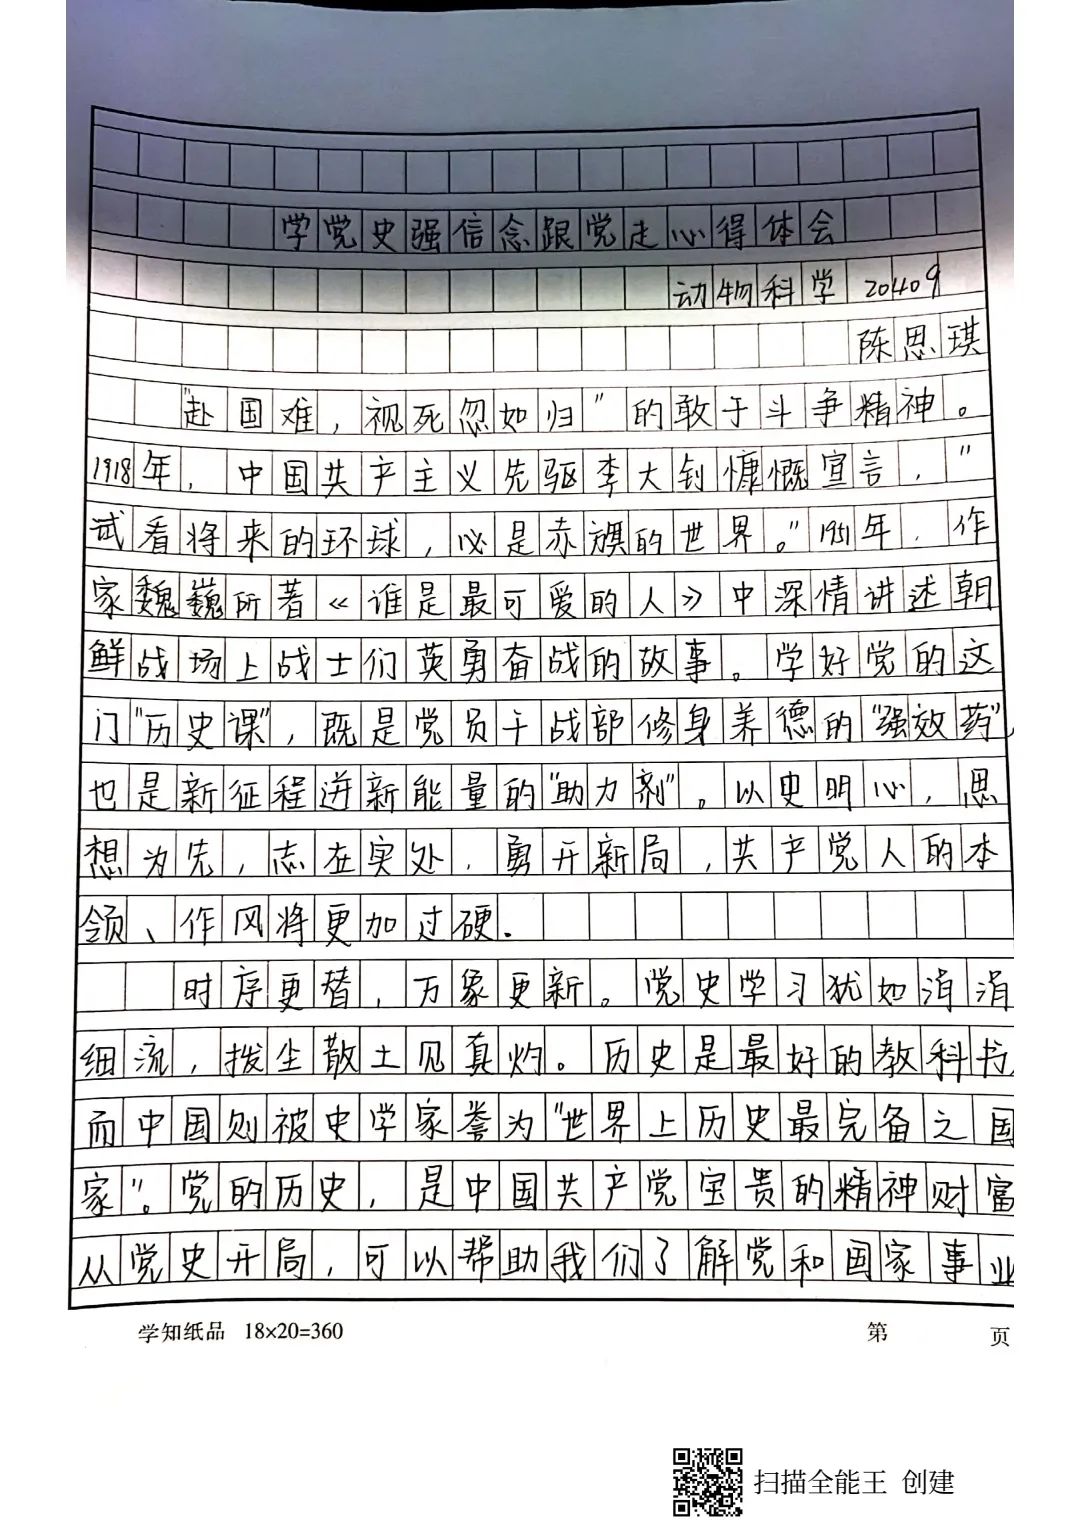 学党史强信念跟党走心得体会
动物科学 20409
陈思琪
"赴国难，视死忽如归"的敢于斗争精神。
1918年，中国共产主义先驱李大钊慷慨宣言，"
试看将来的环球，必是赤旗的世界。"1951年，作
家魏巍所著《谁是最可爱的人》中深情讲述朝
鲜战场上战士们英勇奋战的故事。学好党的这
门"历史课"，既是党员干战部修身养德的"强效药"，
也是新征程迸新能量的"助力剂"。以史明心，思
想为先，志在实处，勇开新局，共产党人的本
领、作风将更加过硬.
时序更替，万象更新。党史学习犹如涓涓
细流，拨尘散土见真灼。历史是最好的教科书，
而中国则被史学家誉为"世界上历史最完备之国
家"。党的历史，是中国共产党宝贵的精神财富
从党史开局，可以帮助我们了解党和国家事业
学知纸品 18×20=360 第 页
扫描全能王 创建